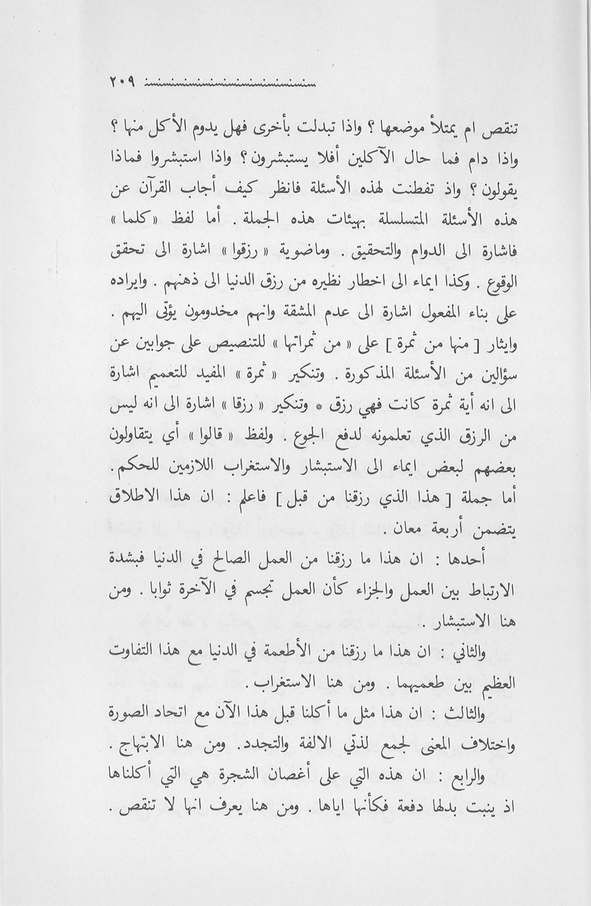 ٢٠٩
تنقص ام يمتلأ موضعها ؟ واذا تبدلت بأخرى فهل يدوم الأكل منها ؟
واذا دام فما حال الآكلين أفلا يستبشرون ؟ واذا استبشروا فماذا
يقولون ؟ واذ تفطنت لهذه الأسئلة فانظر كيف أجاب القرآن عن
هذه الأسئلة المتسلسلة بهيئات هذه الجملة . أما لفظ « كلما »
فاشارة الى الدوام والتحقيق . وماضوية « رزقوا » اشارة الى تحقق
الوقوع . وكذا ايماء الى اخطار نظيره من رزق الدنيا الى ذهنهم . وايراده
على بناء المفعول اشارة الى عدم المشقة وانهم مخدومون يؤتى اليهم .
وايثار [ منها من ثمرة ] على « من ثمراتها » للتنصيص على جوابين عن
سؤالين من الأسئلة المذكورة . وتنكير « ثمرة » المفيد للتعميم اشارة
الى انه أية ثمرة كانت فهي رزق * وتنكير « رزقا » اشارة الى انه ليس
من الرزق الذي تعلمونه لدفع الجوع . ولفظ « قالوا » أي يتقاولون
بعضهم لبعض ايماء الى الاستبشار والاستغراب اللازمين للحكم.
أما جملة [ هذا الذي رزقنا من قبل ] فاعلم : ان هذا الاطلاق
يتضمن أربعة معان .
أحدها : ان هذا ما رزقنا من العمل الصالح في الدنيا فبشدة
الارتباط بين العمل والجزاء كأن العمل تجسم في الآخرة ثوابا . ومن
هنا الاستبشار .
والثاني : ان هذا ما رزقنا من الأطعمة في الدنيا مع هذا التفاوت
العظيم بين طعميهما . ومن هنا الاستغراب .
والثالث : ان هذا مثل ما أكلنا قبل هذا الآن مع اتحاد الصورة
واختلاف المعنى لجمع لذتي الالفة والتجدد. ومن هنا الابتهاج .
والرابع : ان هذه التي على أغصان الشجرة هي التي أكلناها
اذ ينبت بدلها دفعة فكأنها اياها . ومن هنا يعرف انها لا تنقص .